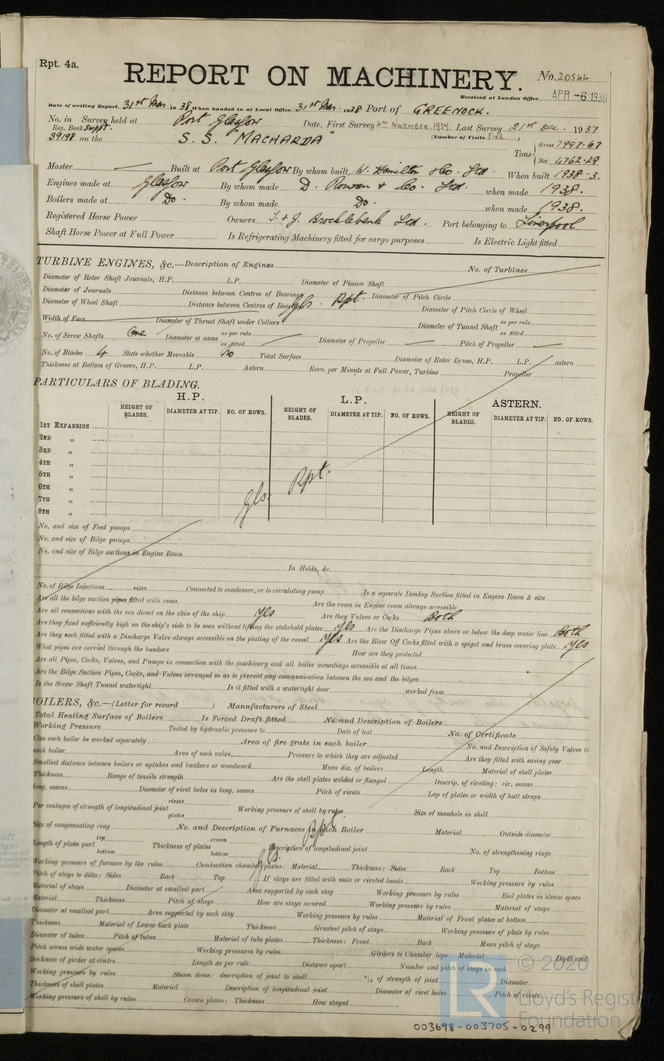 Rpt. 4a.
REPORT ON MACHINERY.
No. 20544
Received at London Office APR -6 1938
Date of writing Report 31st Mar. 1938. When handed in at Local Office 31st Mar. 1938 Port of GREENOCK.
No. in Survey held at Port Glasgow Date, First Survey November 1937 Last Survey 21st Dec. 1937
Reg. Book Suppt. (Number of Visits Five)
39198 on the S.S. "MACHARDA" Tons Gross 7997.67 Net 4762.29
Master — Built at Port Glasgow By whom built W. Hamilton & Co. Ltd. When built 1938-3.
Engines made at Glasgow By whom made D. Rowan & Co. Ltd. when made 1938.
Boilers made at Do. By whom made Do. when made 1938.
Registered Horse Power Owners T. & J. Brocklebank Ltd. Port belonging to Liverpool
Shaft Horse Power at Full Power Is Refrigerating Machinery fitted for cargo purposes Is Electric Light fitted
TURBINE ENGINES, &c.—Description of Engines No. of Turbines
Diameter of Rotor Shaft Journals, H.P. L.P. Diameter of Pinion Shaft
Diameter of Journals Distance between Centres of Bearings Gls. Rpt. Diameter of Pitch Circle
Diameter of Wheel Shaft Distance between Centres of Bearings Diameter of Pitch Circle of Wheel
Width of Face Diameter of Thrust Shaft under Collars Diameter of Tunnel Shaft as per rule as fitted
No. of Screw Shafts One Diameter of same as per rule as fitted Diameter of Propeller Pitch of Propeller
No. of Blades 4 State whether Movable No Total Surface Diameter of Rotor Drum, H.P. L.P. astern
Thickness at Bottom of Groove, H.P. L.P. Astern Revs. per Minute at Full Power, Turbine Propeller
PARTICULARS OF BLADING.
H.P. L.P. ASTERN.
HEIGHT OF BLADES. DIAMETER AT TIP. NO. OF ROWS. HEIGHT OF BLADES. DIAMETER AT TIP. NO. OF ROWS. HEIGHT OF BLADES. DIAMETER AT TIP. NO. OF ROWS.
1ST EXPANSION
2ND "
3RD "
4TH "
5TH "
6TH "
7TH "
8TH "
Gls. Rpt.
No. and size of Feed pumps
No. and size of Bilge pumps
No. and size of Bilge suctions in Engine Room
In Holds, &c.
No. of Bilge Injections sizes Connected to condenser, or to circulating pump Is a separate Donkey Suction fitted in Engine Room & size
Are all the bilge suction pipes fitted with roses Are the roses in Engine room always accessible
Are all connections with the sea direct on the skin of the ship Yes Are they Valves or Cocks Both
Are they fixed sufficiently high on the ship's side to be seen without lifting the stokehold plates Yes Are the Discharge Pipes above or below the deep water line Both
Are they each fitted with a Discharge Valve always accessible on the plating of the vessel Yes Are the Blow Off Cocks fitted with a spigot and brass covering plate Yes
What pipes are carried through the bunkers How are they protected
Are all Pipes, Cocks, Valves, and Pumps in connection with the machinery and all boiler mountings accessible at all times
Are the Bilge Suction Pipes, Cocks, and Valves arranged so as to prevent any communication between the sea and the bilges
Is the Screw Shaft Tunnel watertight Is it fitted with a watertight door worked from
BOILERS, &c.—(Letter for record ) Manufacturers of Steel
Total Heating Surface of Boilers Is Forced Draft fitted No. and Description of Boilers
Working Pressure Tested by hydraulic pressure to Date of test No. of Certificate
Can each boiler be worked separately Area of fire grate in each boiler No. and Description of Safety Valves to
each boiler Area of each valve Pressure to which they are adjusted Are they fitted with easing gear
Smallest distance between boilers or uptakes and bunkers or woodwork Mean dia. of boilers Length Material of shell plates
Thickness Range of tensile strength Are the shell plates welded or flanged Descrip. of riveting: cir. seams
long. seams Diameter of rivet holes in long. seams Pitch of rivets Lap of plates or width of butt straps
Per centages of strength of longitudinal joint rivets plates Working pressure of shell by rules Size of manhole in shell
Size of compensating ring No. and Description of Furnaces in each Boiler Material Outside diameter
Length of plain part top bottom Thickness of plates crown bottom Description of longitudinal joint No. of strengthening rings
Gls. Rpt.
Working pressure of furnace by the rules Combustion chamber plates: Material Thickness: Sides Back Top Bottom
Pitch of stays to ditto: Sides Back Top If stays are fitted with nuts or riveted heads Working pressure by rules
Material of stays Diameter at smallest part Area supported by each stay Working pressure by rules End plates in steam space
Material Thickness Pitch of stays How are stays secured Working pressure by rules Material of stays
Diameter at smallest part Area supported by each stay Working pressure by rules Material of Front plates at bottom
Thickness Material of Lower back plate Thickness Greatest pitch of stays Working pressure of plate by rules
Diameter of tubes Pitch of tubes Material of tube plates Thickness: Front Back Mean pitch of stays
Pitch across wide water spaces Working pressures by rules Girders to Chamber tops: Material Depth and
thickness of girder at centre Length as per rule Distance apart Number and pitch of stays in each
Working pressure by rules Steam dome: description of joint to shell % of strength of joint Diameter
Thickness of shell plates Material Description of longitudinal joint Diameter of rivet holes Pitch of rivets
Working pressure of shell by rules Crown plates: Thickness How stayed
© 2020
LR
Lloyd's Register
Foundation
003698-003705-0299